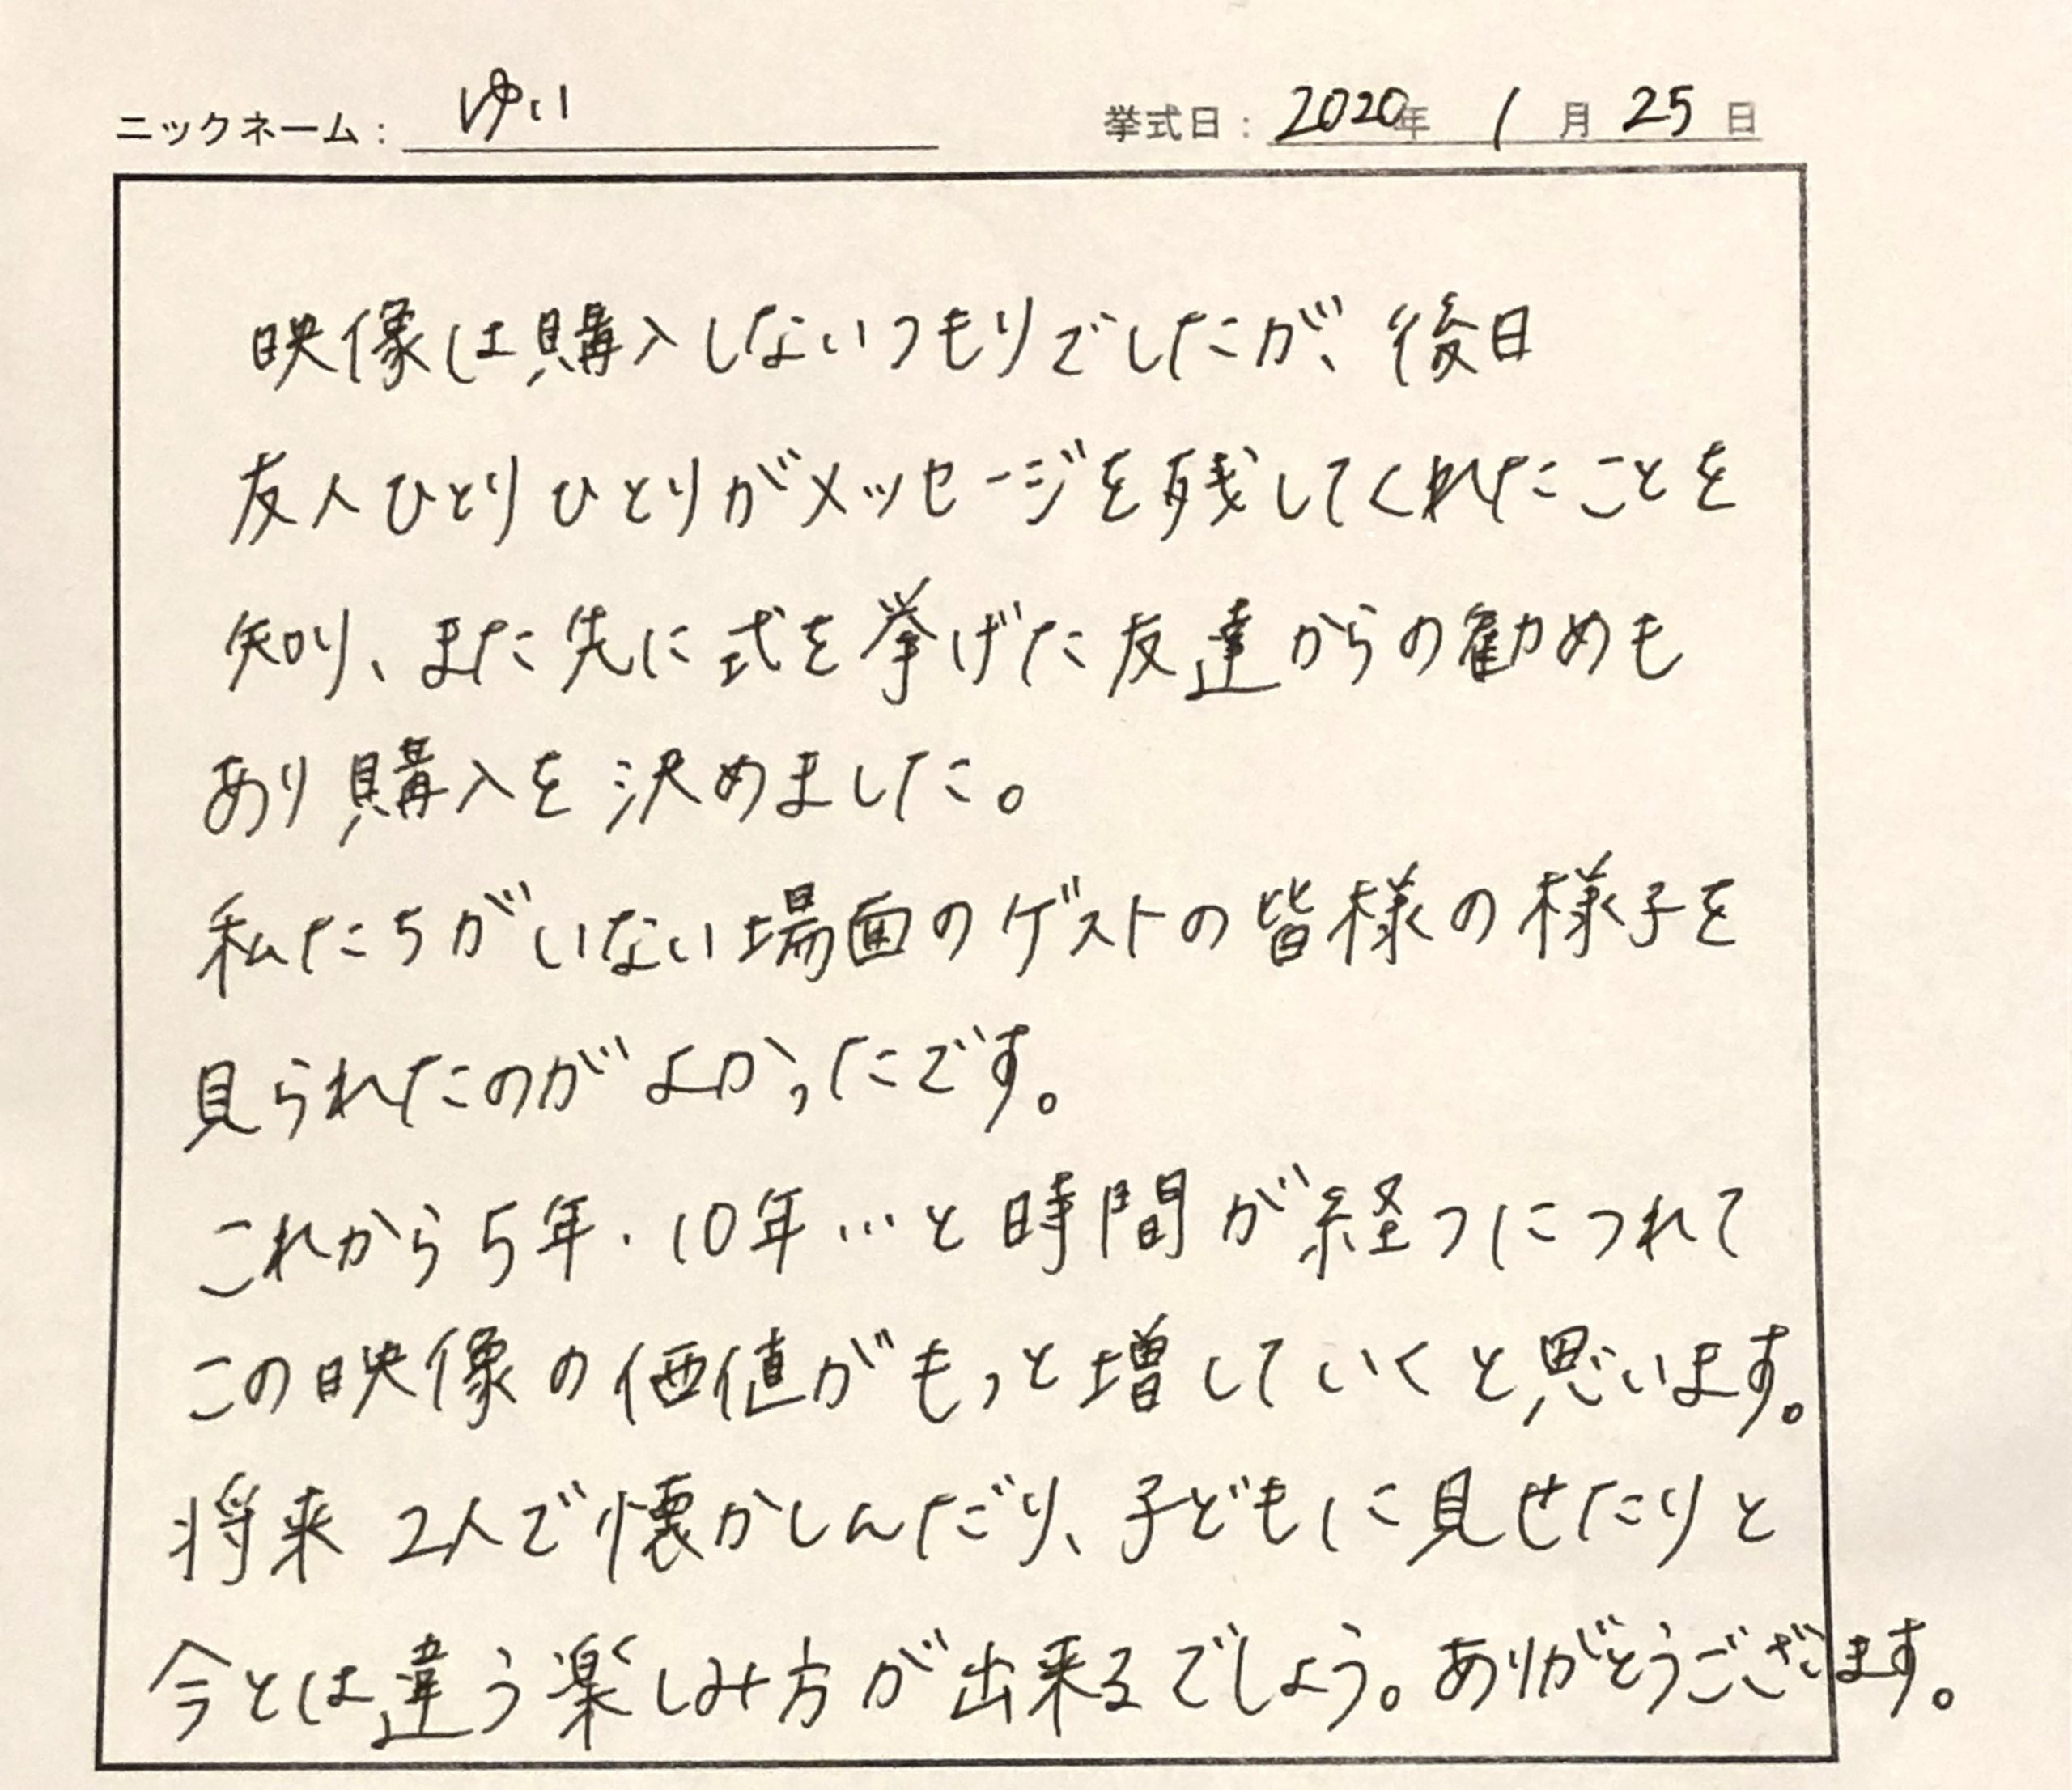 ニックネーム： ゆい 挙式日：2020年 1月 25日
映像は購入しないつもりでしたが、後日
友人ひとりひとりがメッセージを残してくれたことを
知り、また先に式を挙げた友達からの勧めも
あり購入を決めました。
私たちがいない場面のゲストの皆様の様子を
見られたのがよかったです。
これから5年・10年…と時間が経つにつれて
この映像の価値がもっと増していくと思います。
将来2人で懐かしんだり、子どもに見せたりと
今とは違う楽しみ方が出来るでしょう。ありがとうございます。